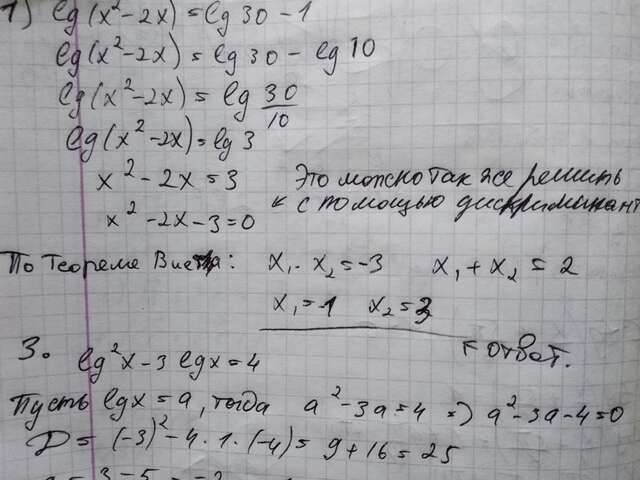 1) lg(x²-2x)=lg30-1
lg(x²-2x)=lg30-lg10
lg(x²-2x)=lg 30/10
lg(x²-2x)=lg3
x²-2x=3
x²-2x-3=0
Это можно так же решить
с помощью дискриминант
По Теореме Виета: x₁·x₂=-3 x₁+x₂=2
x₁=-1 x₂=3
ответ.
3. lg²x-3lgx=4
Пусть lgx=a, тогда a²-3a=4 => a²-3a-4=0
D=(-3)²-4·1·(-4)=9+16=25